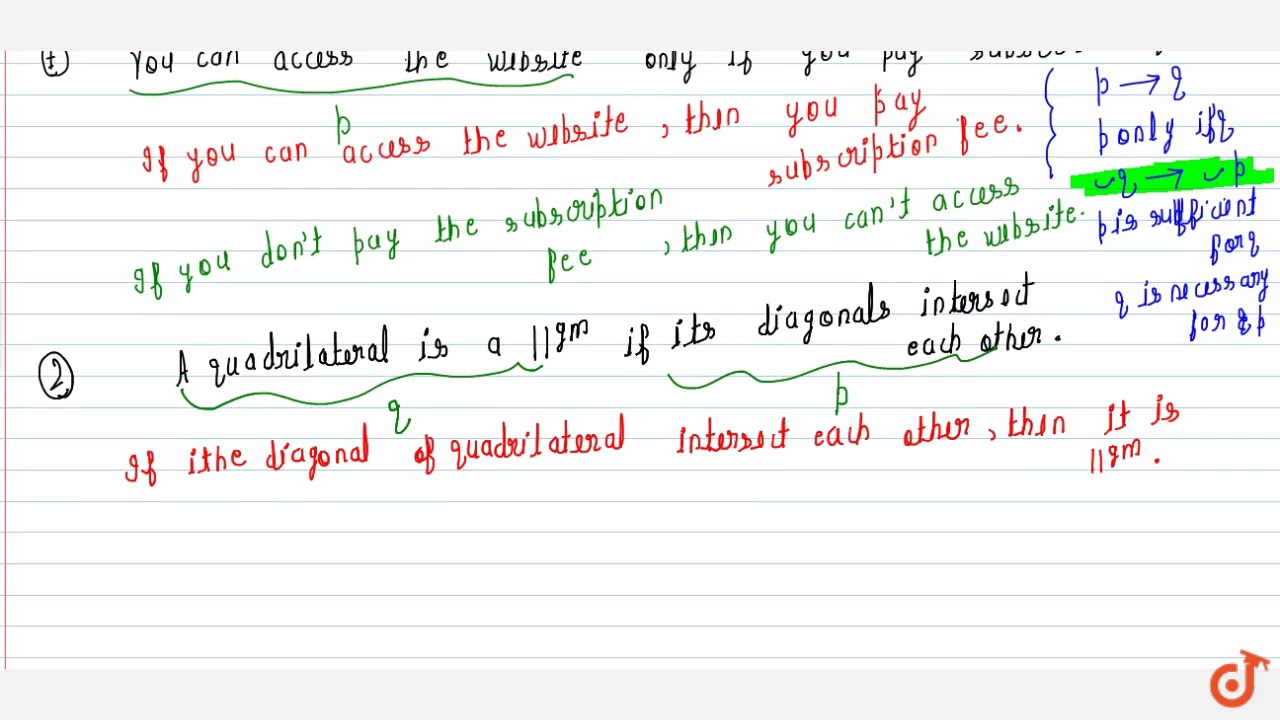 You can access the website only if you pay
p
If you can access the website, then you pay
subscription fee.
p → q
p only if q
~q → ~p
p is sufficient
for q
q is necessary
for p
If you don't pay the subscription
fee, then you can't access
the website.
(2) A quadrilateral is a ||gm if its diagonals intersect
each other.
q p
If the diagonal of quadrilateral intersect each other, then it is
||gm.